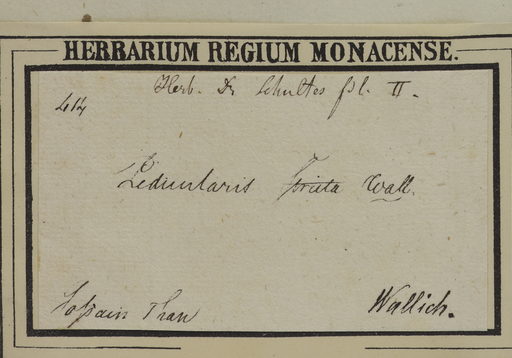 HERBARIUM REGIUM MONACENSE.
Herb. Dr Schultes fil. II.
414
Pedicularis Wall.
Hossain Than
Wallich.